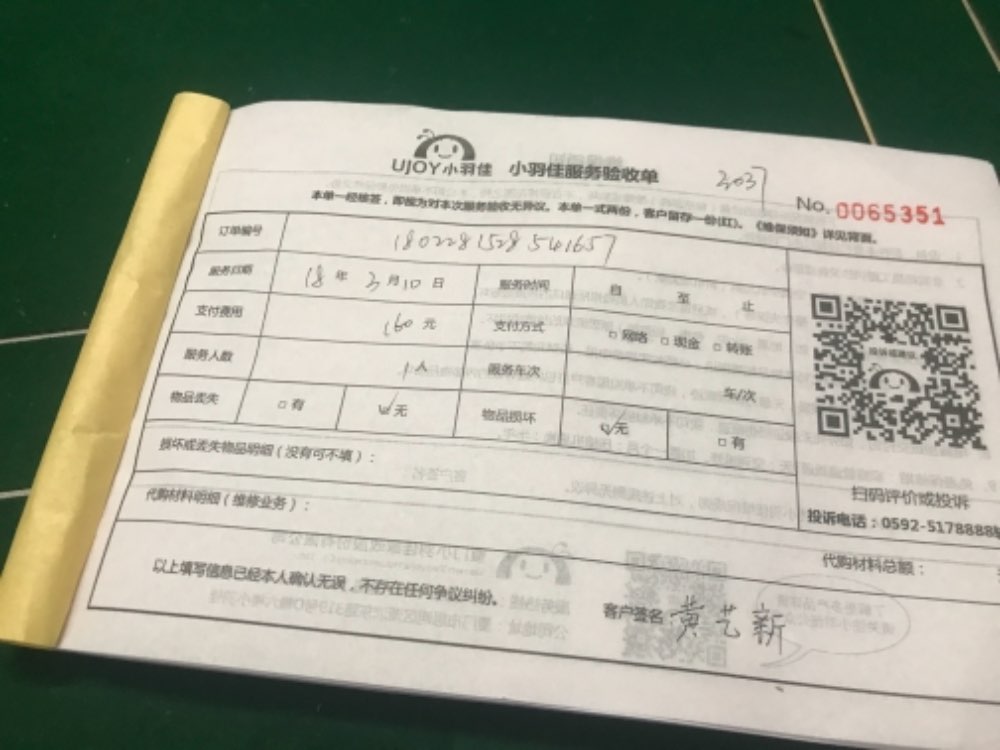 UJOY小羽佳 小羽佳服务验收单
3037
No. 0065351
本单一经维签，即视为对本次服务验收无异议。本单一式两份，客户留存一份(红)。《维保须知》详见背面。
订单编号 180228152854
服务日期 18年3月10日 服务时间 自 至 止
支付费用 160元 支付方式 □网络 □现金 □转账
服务人数 1人 服务车次 车/次
物品丢失 □有 ☑无 物品损坏 ☑无 □有
损坏或丢失物品明细（没有可不填）：
代购材料明细（维修业务）：
投诉或建议
扫码评价或投诉
投诉电话：0592-5178888
代购材料总额：
以上填写信息已经本人确认无误，不存在任何争议纠纷。
客户签名：黄艺新